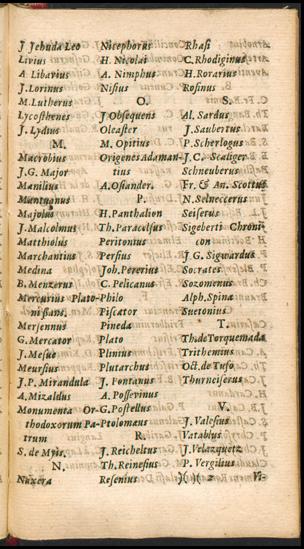 J. Jehuda Leo
Livius
A Libavius
J. Lorinus
M. Lutherus
Lycosthenes
J. Lydius
M.
Macrobius
J.G. Major
Manilius
Mantuanus
Majolus
J. Malcolmus
Matthiolus
Marchantius
Medina
B. Menzerus
Mercurius Plato-
nisans.
Mersennus
G. Mercator
J. Mesue
Meursius
J.P. Mirandula
A. Mizaldus
Monumenta Or-
thodoxorum Pa-
trum
S. de Myis.
N.
Nuxera
Nicephorus
H. Nicolai
A. Nimphus
Nisus
O.
J. Obsequens
Oleaster
M. Opitius
Origenes Adaman-
tius
A. Osiander.
P.
H. Panthalion
Th. Paracelsus
Peritonius
Persius
Joh. Pererius
C. Pelicanus
Philo
Piscator
Pineda
Plato
Plinius
Plutarchus
J. Fontanus
A. Possevinus
G. Postellus
Ptolomæus
R.
J. Reicheltus
Th. Reinesius
Resenius
Rhasi
C. Rhodiginus
H. Rorarius
Rosinus
S.
Al. Sardus
J. Saubertus
P. Scherlogus
J. C. Scaliger
Schneuberus
Fr. & An. Scottus
N. Selneccerus
Seiserus
Sigeberti Chroni-
con
J.G. Sigwardus
Socrates
Sozomenus
Alph. Spina
Suetonius
T.
Th. de Torquemada
Trithemius
Oct. de Tufo
Thurneiserus
V.
J. Valesius
Vatablus
J. Velazquetz
P. Vergilius
)( )( 2
Vi-